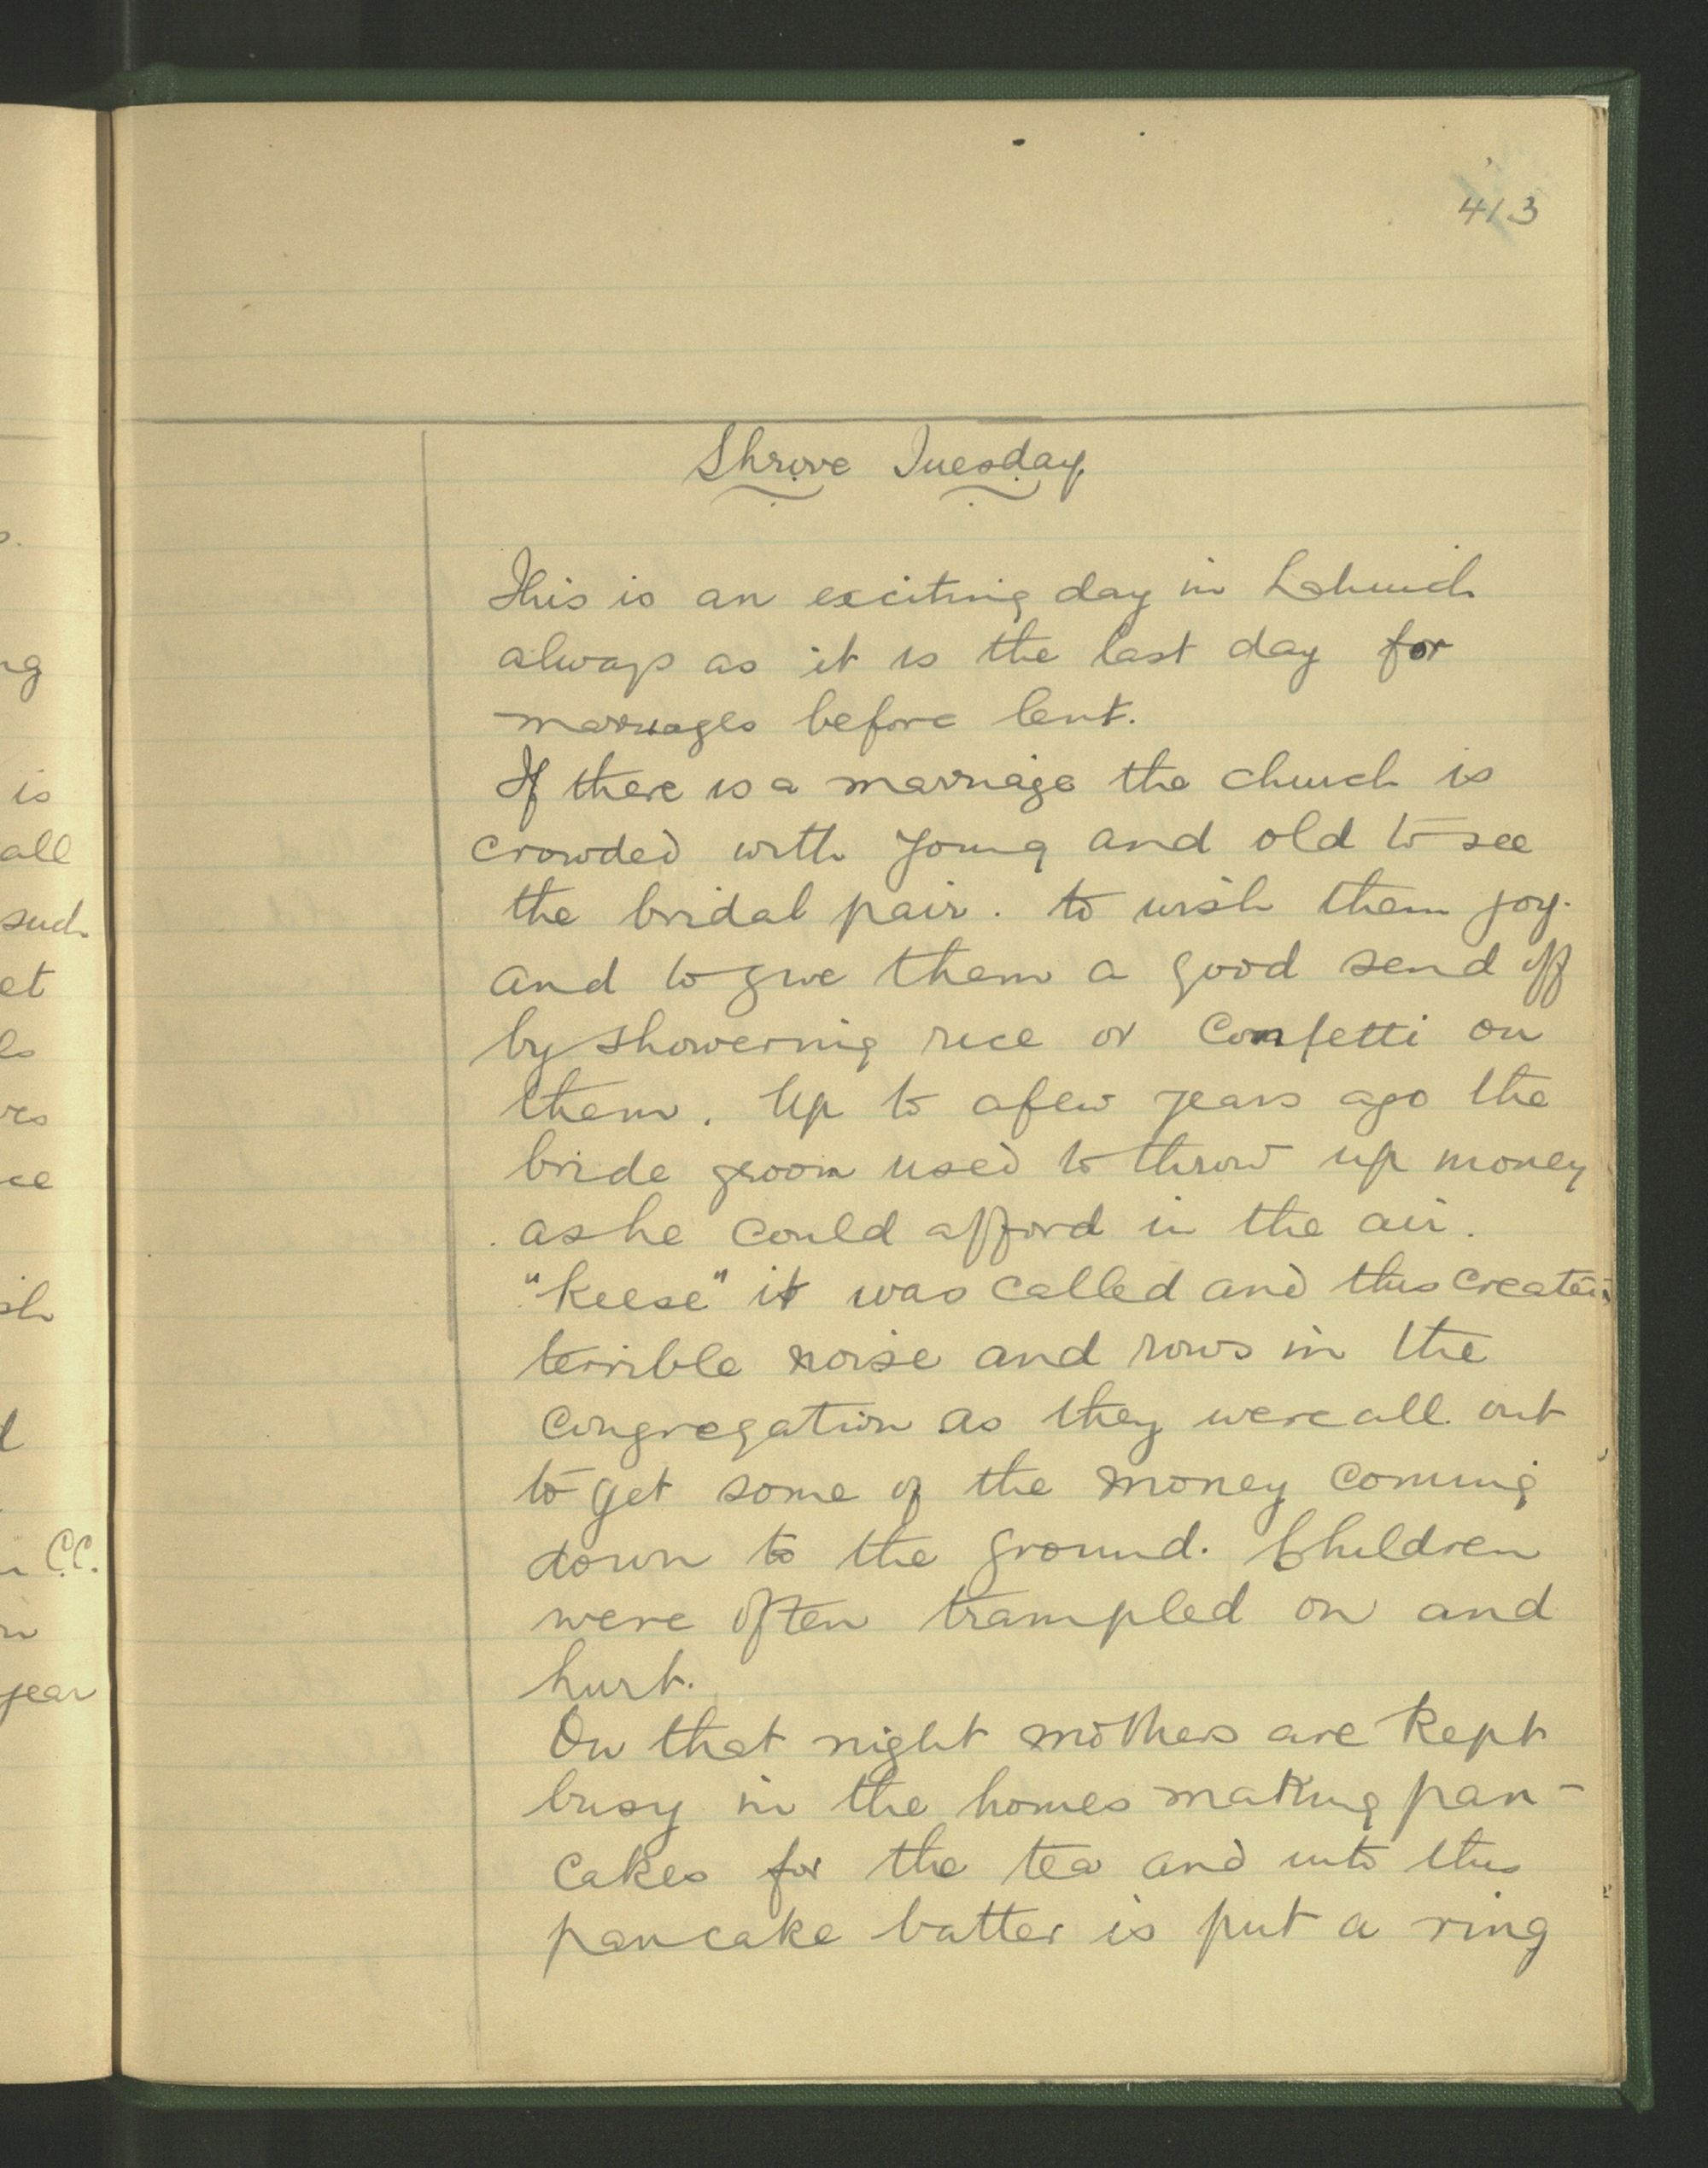 413
Shrove Tuesday
This is an exciting day in
always as it is the last day for
marriages before lent.
If there is a marriage the church is
crowded with young and old to see
the bridal pair. to wish them joy.
and to give them a good send off
by showering rice or Confetti on
them. Up to afew years ago the
bride groom used to throw up money
as he could afford in the air.
"Keese" it was called and this created
terrible noise and rows in the
congregation as they were all out
to get some of the money coming
down to the ground. Children
were often trampled on and
hurt.
On that night mothers are kept
busy in the homes making pan-
cakes for the tea and into this
pancake batter is put a ring
ng
is
all
such
et
ce
C.C.
year